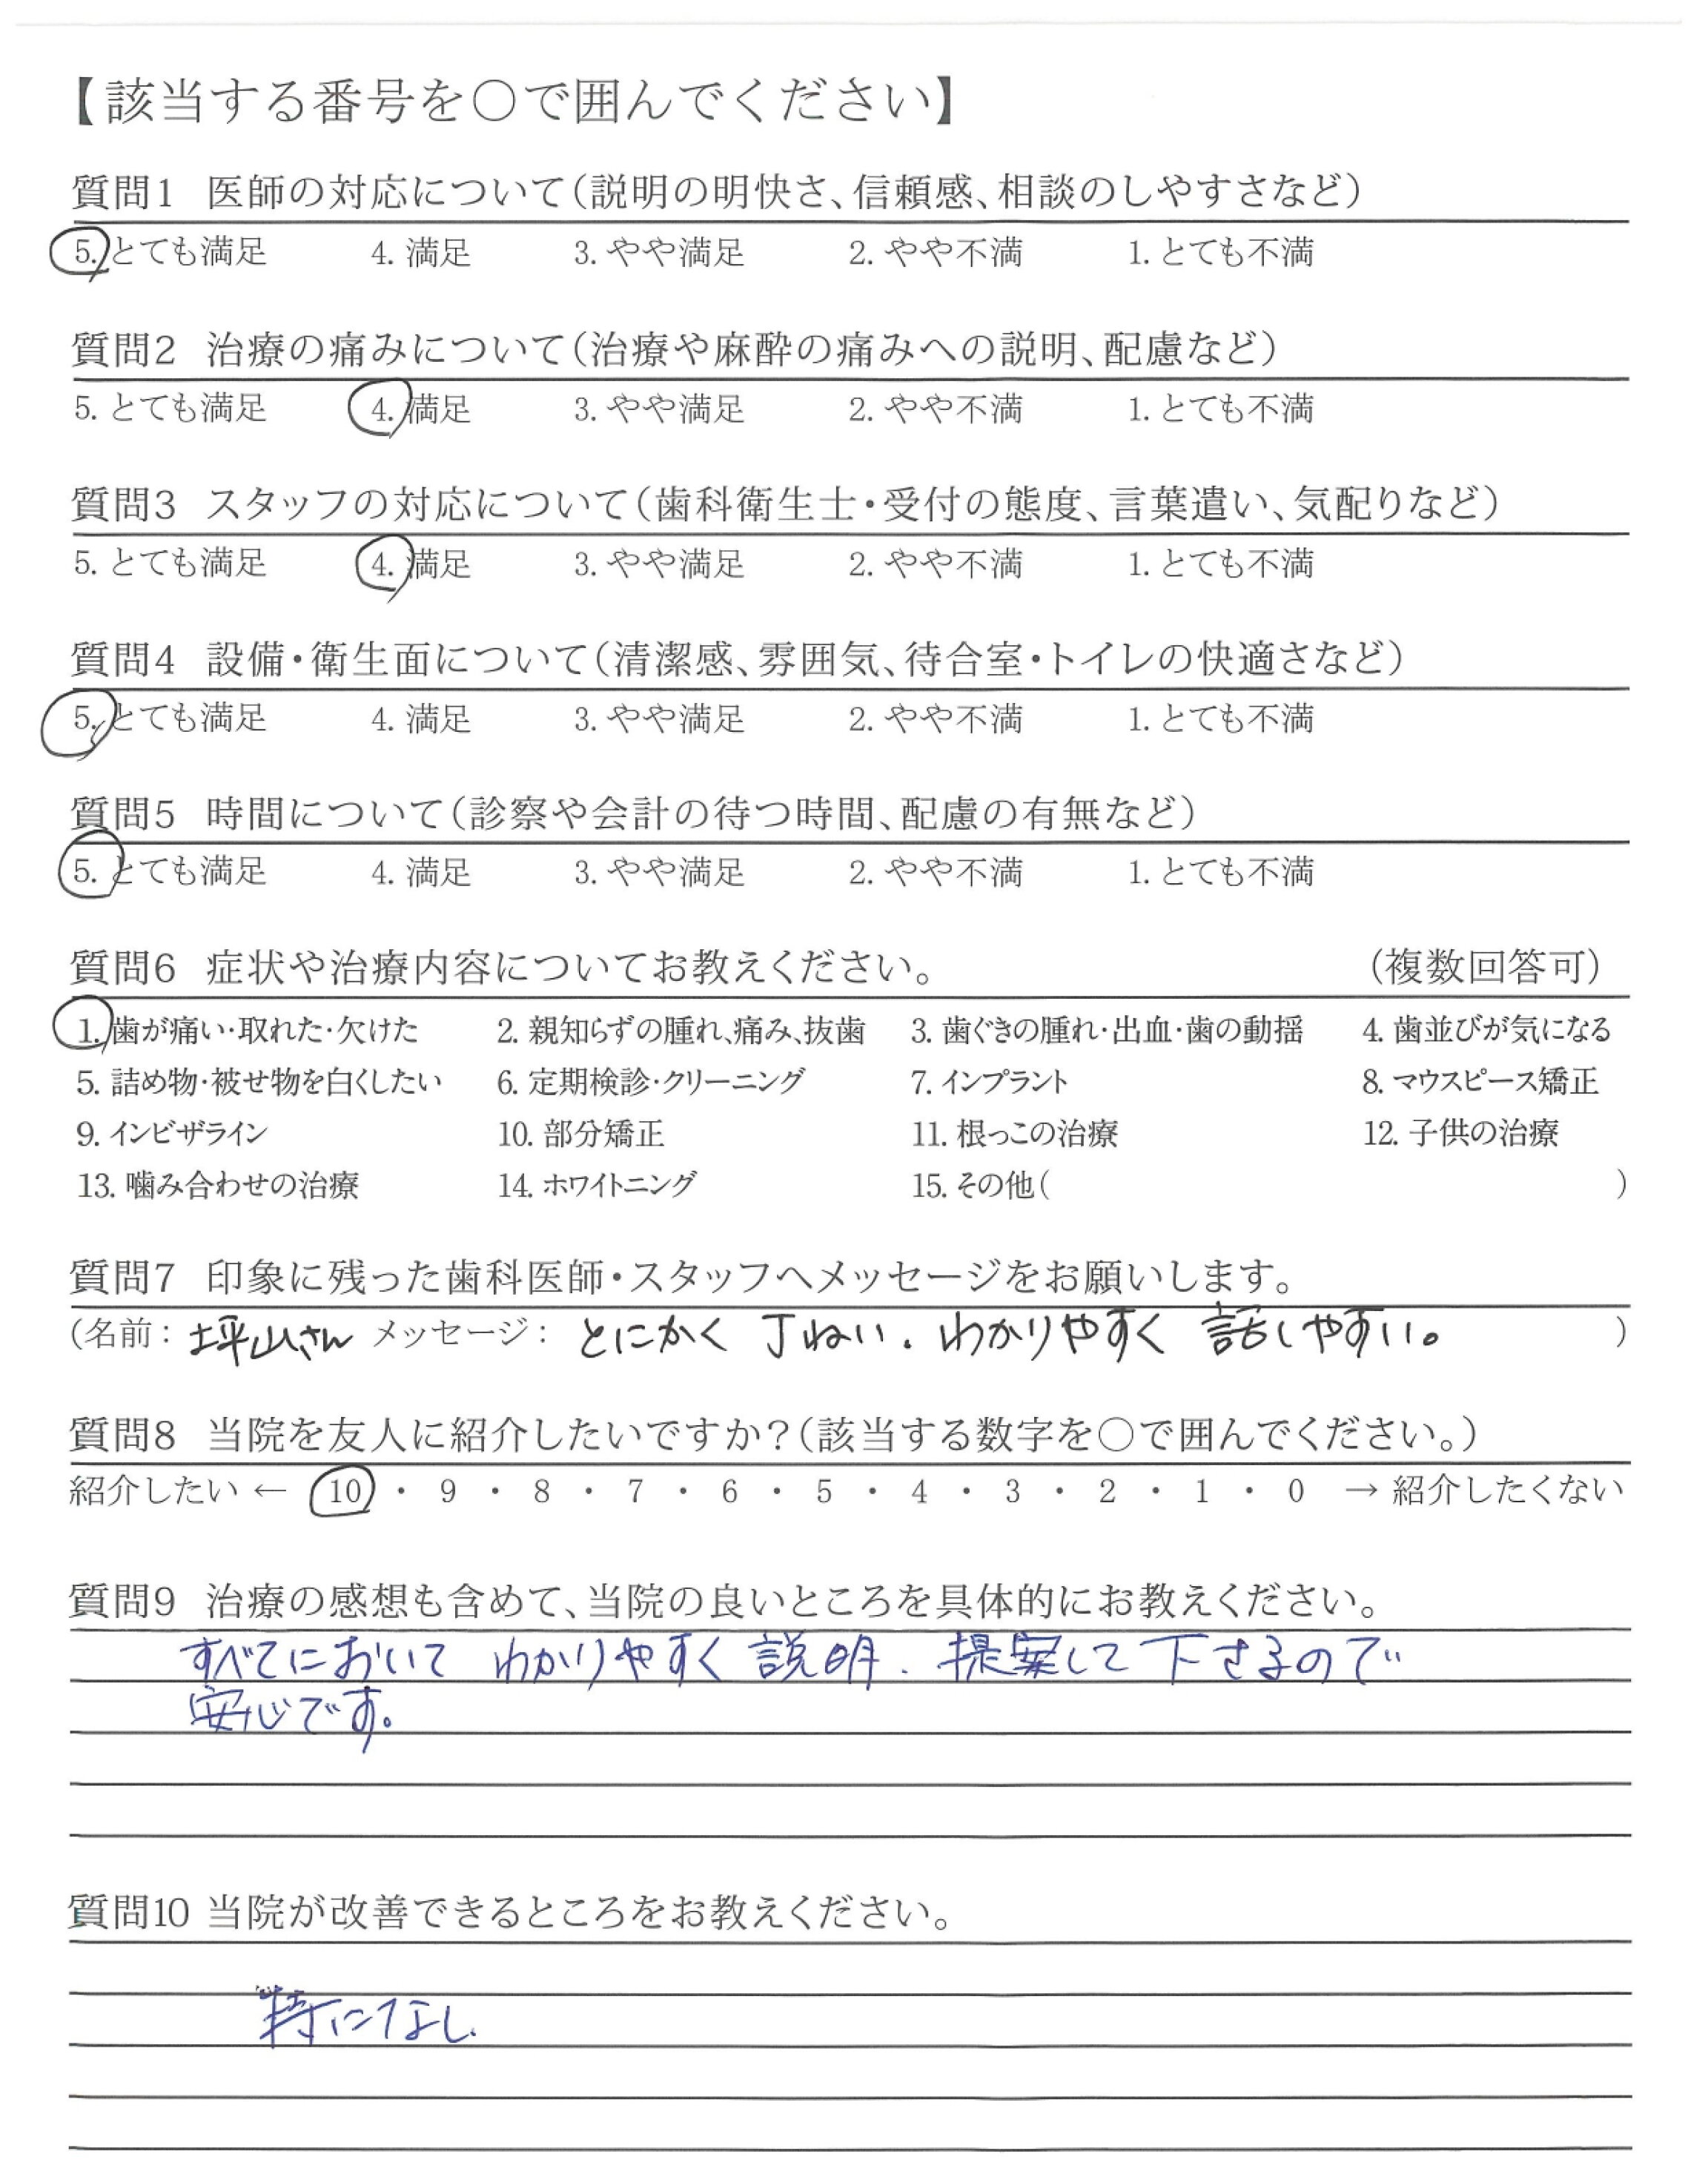 【該当する番号を〇で囲んでください】
質問1 医師の対応について(説明の明快さ、信頼感、相談のしやすさなど)
5. とても満足 4. 満足 3. やや満足 2. やや不満 1. とても不満
質問2 治療の痛みについて(治療や麻酔の痛みへの説明、配慮など)
5. とても満足 4. 満足 3. やや満足 2. やや不満 1. とても不満
質問3 スタッフの対応について(歯科衛生士・受付の態度、言葉遣い、気配りなど)
5. とても満足 4. 満足 3. やや満足 2. やや不満 1. とても不満
質問4 設備・衛生面について(清潔感、雰囲気、待合室・トイレの快適さなど)
5. とても満足 4. 満足 3. やや満足 2. やや不満 1. とても不満
質問5 時間について(診察や会計の待つ時間、配慮の有無など)
5. とても満足 4. 満足 3. やや満足 2. やや不満 1. とても不満
質問6 症状や治療内容についてお教えください。 (複数回答可)
1. 歯が痛い・取れた・欠けた 2. 親知らずの腫れ、痛み、抜歯 3. 歯ぐきの腫れ・出血・歯の動揺 4. 歯並びが気になる
5. 詰め物・被せ物を白くしたい 6. 定期検診・クリーニング 7. インプラント 8. マウスピース矯正
9. インビザライン 10. 部分矯正 11. 根っこの治療 12. 子供の治療
13. 噛み合わせの治療 14. ホワイトニング 15. その他( )
質問7 印象に残った歯科医師・スタッフへメッセージをお願いします。
(名前: 坪山さん メッセージ: とにかく 丁ねい. わかりやすく 話しやすい。 )
質問8 当院を友人に紹介したいですか?(該当する数字を〇で囲んでください。)
紹介したい ← 10 ・ 9 ・ 8 ・ 7 ・ 6 ・ 5 ・ 4 ・ 3 ・ 2 ・ 1 ・ 0 → 紹介したくない
質問9 治療の感想も含めて、当院の良いところを具体的にお教えください。
すべてにおいて わかりやすく 説明. 提案して下さるので
安心です。
質問10 当院が改善できるところをお教えください。
特になし.